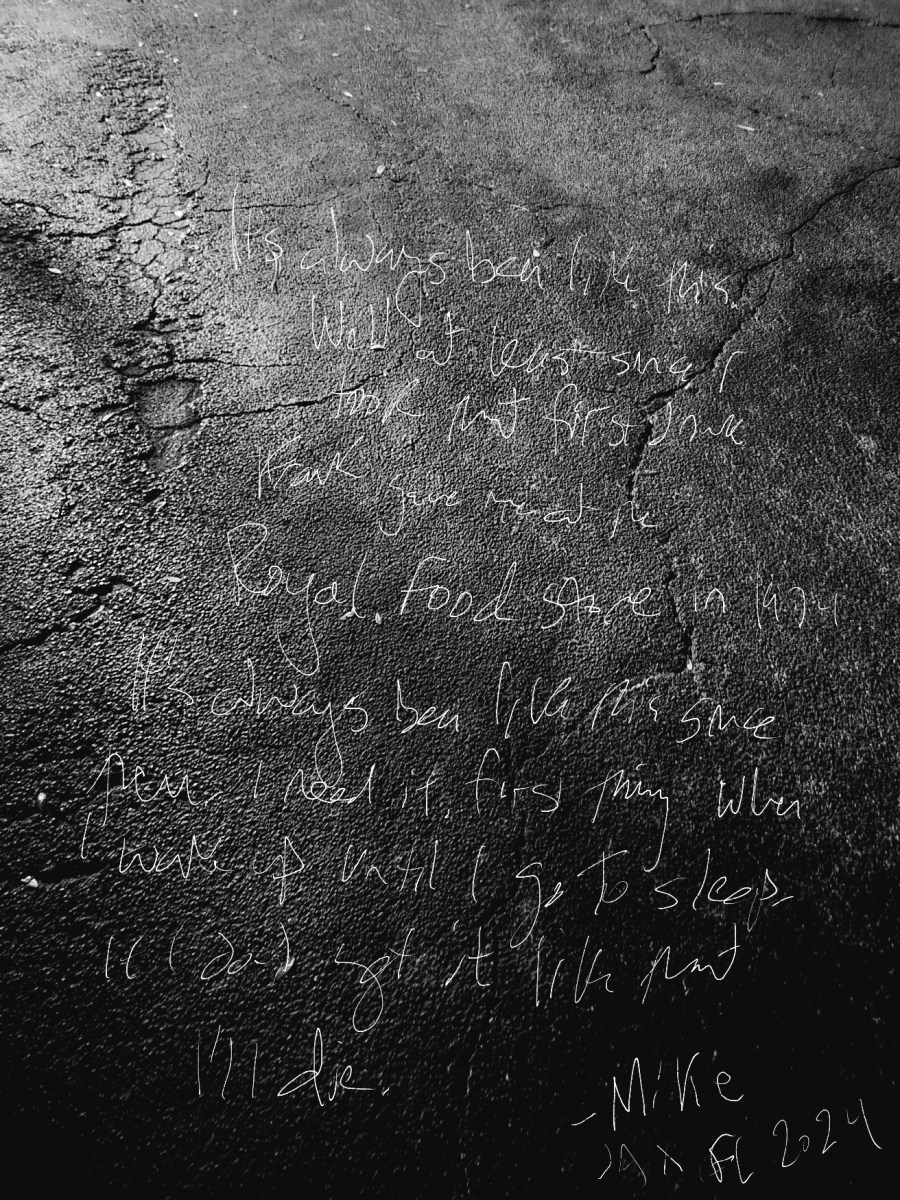 It's always been like this.
Well at least since I
took that first drink
Frank gave me at the
Royal Food Store in 1974
It's always been like this since
then. I need it, first thing when
I wake up until I go to sleep.
If I don't get it like that
I'll die.
- Mike
JAX FL 2024